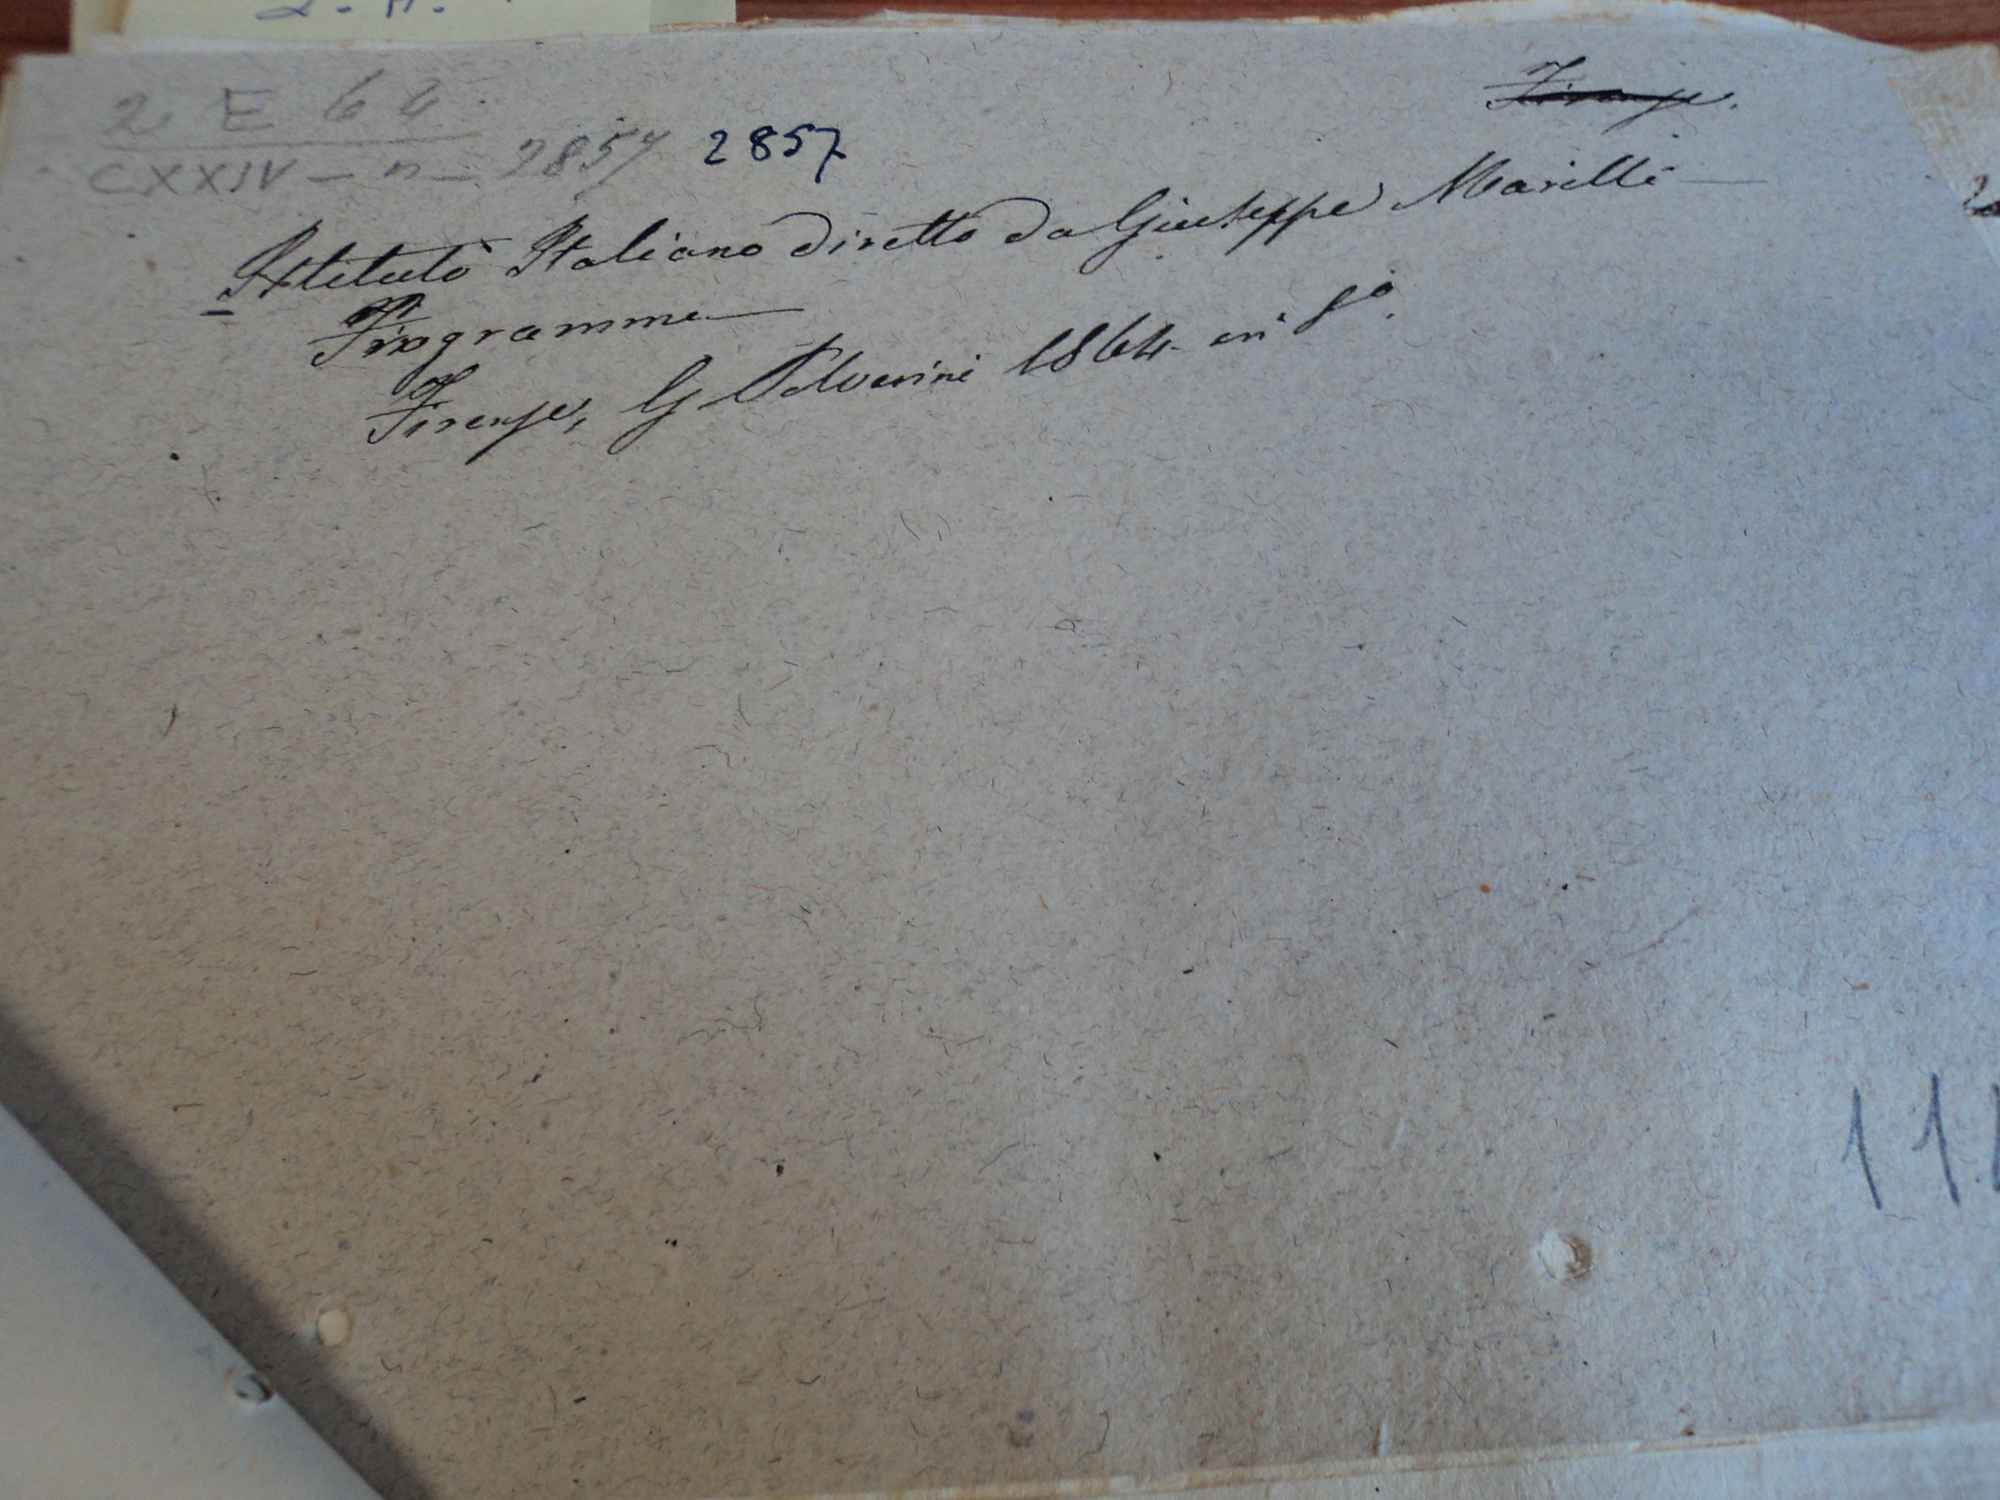 2. A.
2 E 64
Firenze.
CXXIV - n - 2857 2857
Istituto Italiano diretto da Giuseppe Marilli
Programma
Firenze, G Polverini 1864 in 8º.
11